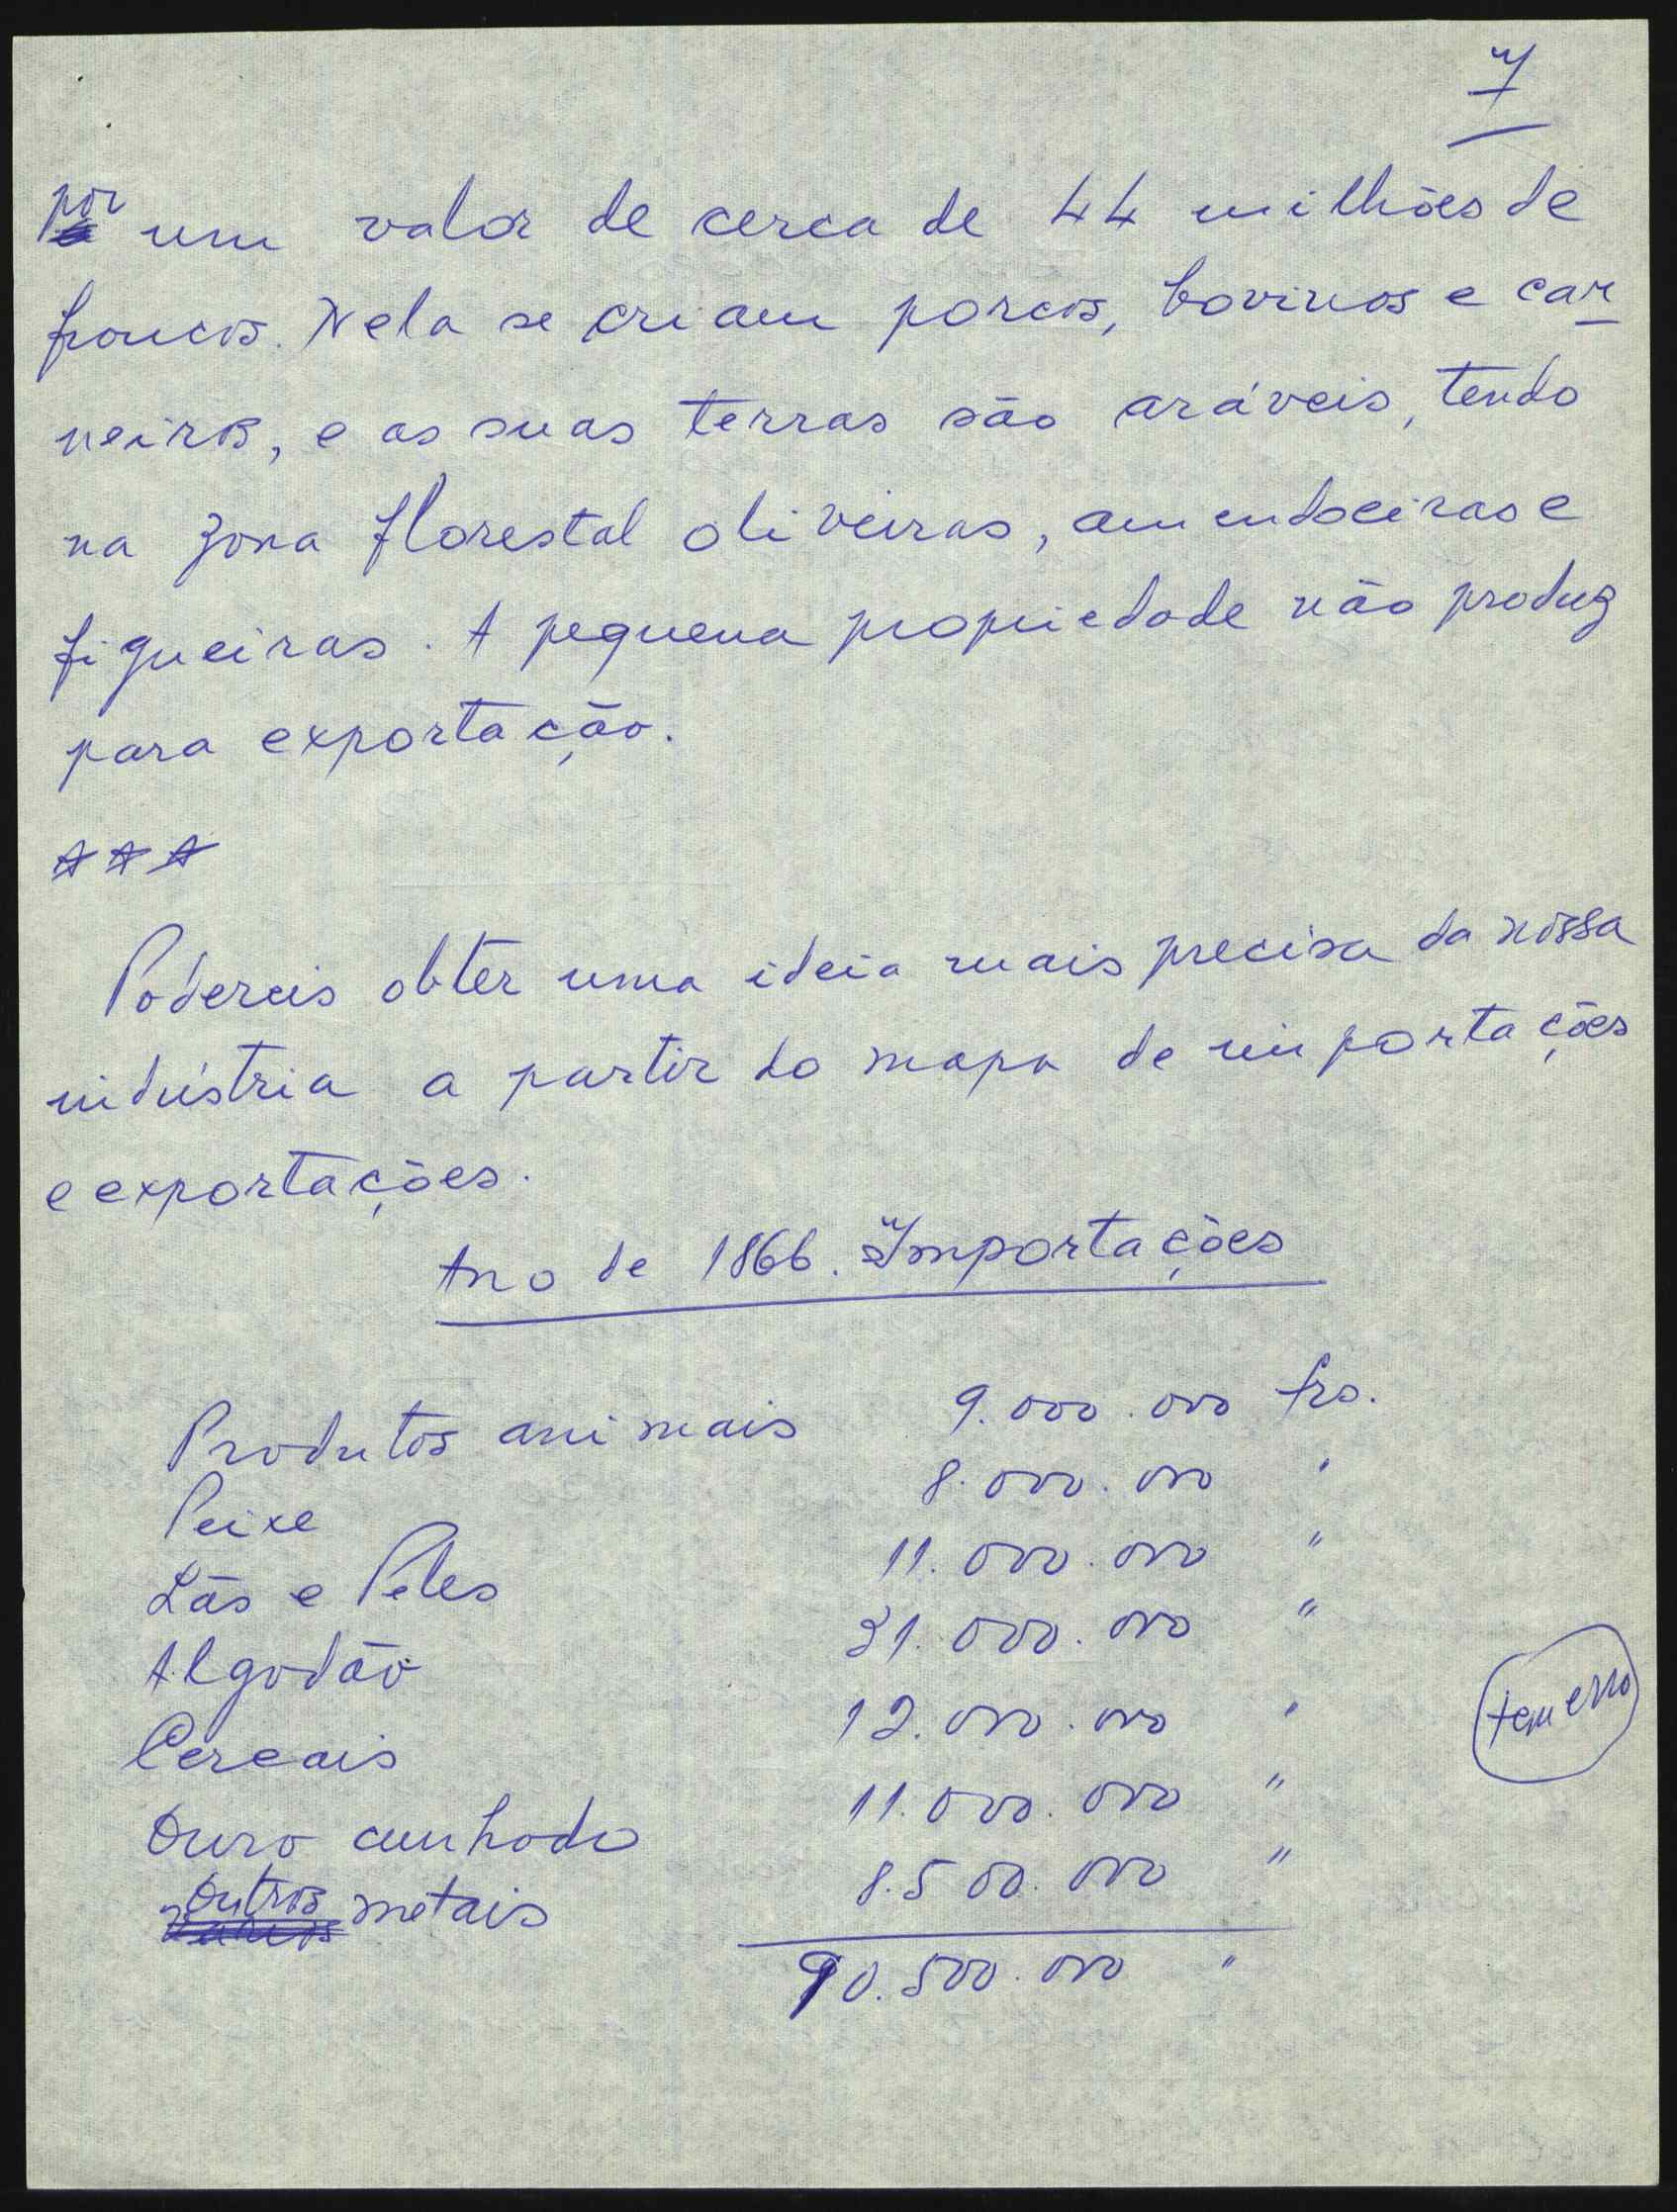 7
por um valor de cerca de 44 milhões de
francos. Nela se criam porcos, bovinos e car
neiros, e as suas terras são aráveis, tendo
na zona florestal oliveiras, amendoeiras e
figueiras. A pequena propriedade não produz
para exportação.
* * *
Podereis obter uma ideia mais precisa da nossa
indústria a partir do mapa de importações
e exportações.
Ano de 1866. Importações
Produtos animais 9.000.000 frs.
Peixe 8.000.000 "
Lãs e Peles 11.000.000 "
Algodão 31.000.000 "
Cereais 12.000.000 "
Ouro cunhado 11.000.000 "
Outros metais 8.500.000 "
90.500.000 "
tem erro